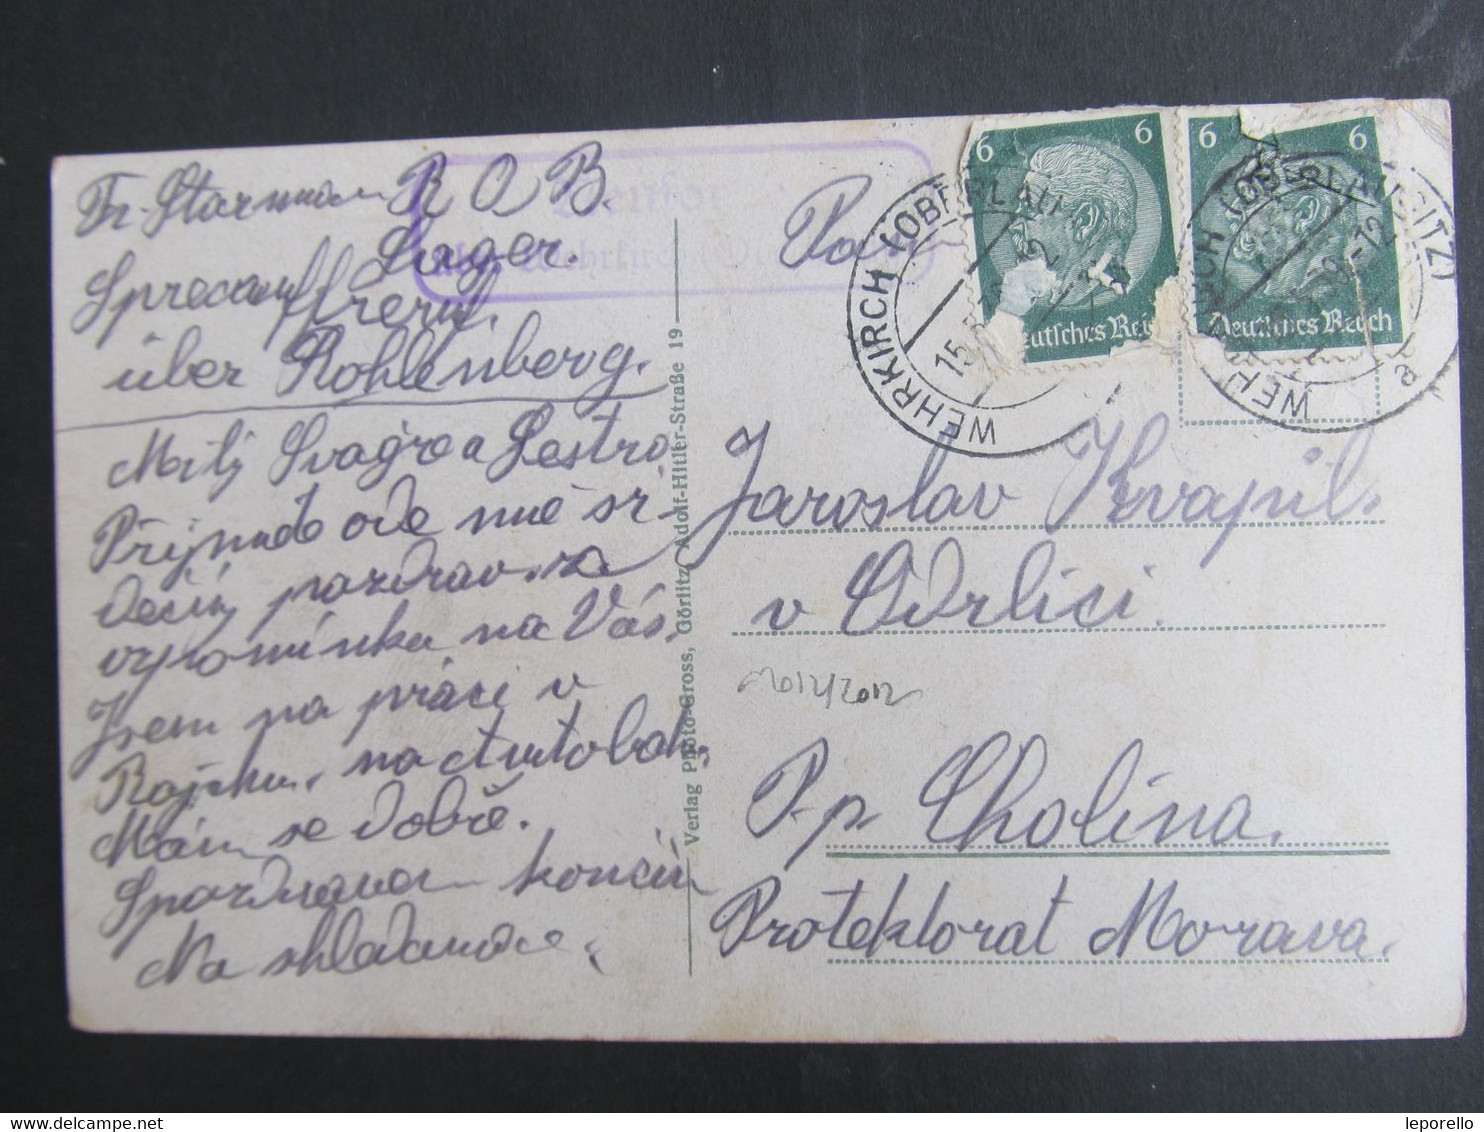 Fr. Starman R O B.
Lager.
über Kohlenberg.
Milý Švagře a Sestro
Přijměte ode mně sr-
dečný pozdrav. za
vzpomínku na Vás.
Jsem na práci v
Rajchu, na Autobah.
Mám se dobře.
S pozdravem končím
Na shledanou.
Verlag Photo-Gross, Görlitz, Adolf-Hitler-Straße 19
6 6
Deutsches Reich
6 6
Deutsches Reich
WEHRKIRCH (OBERLAUSITZ)
WEHRKIRCH (OBERLAUSITZ)
a
Wehrkirch
Pan
Jaroslav Kvapil.
v Odrlici.
2012/2012
P. p. Cholina.
Protektorat Morava.
leporello